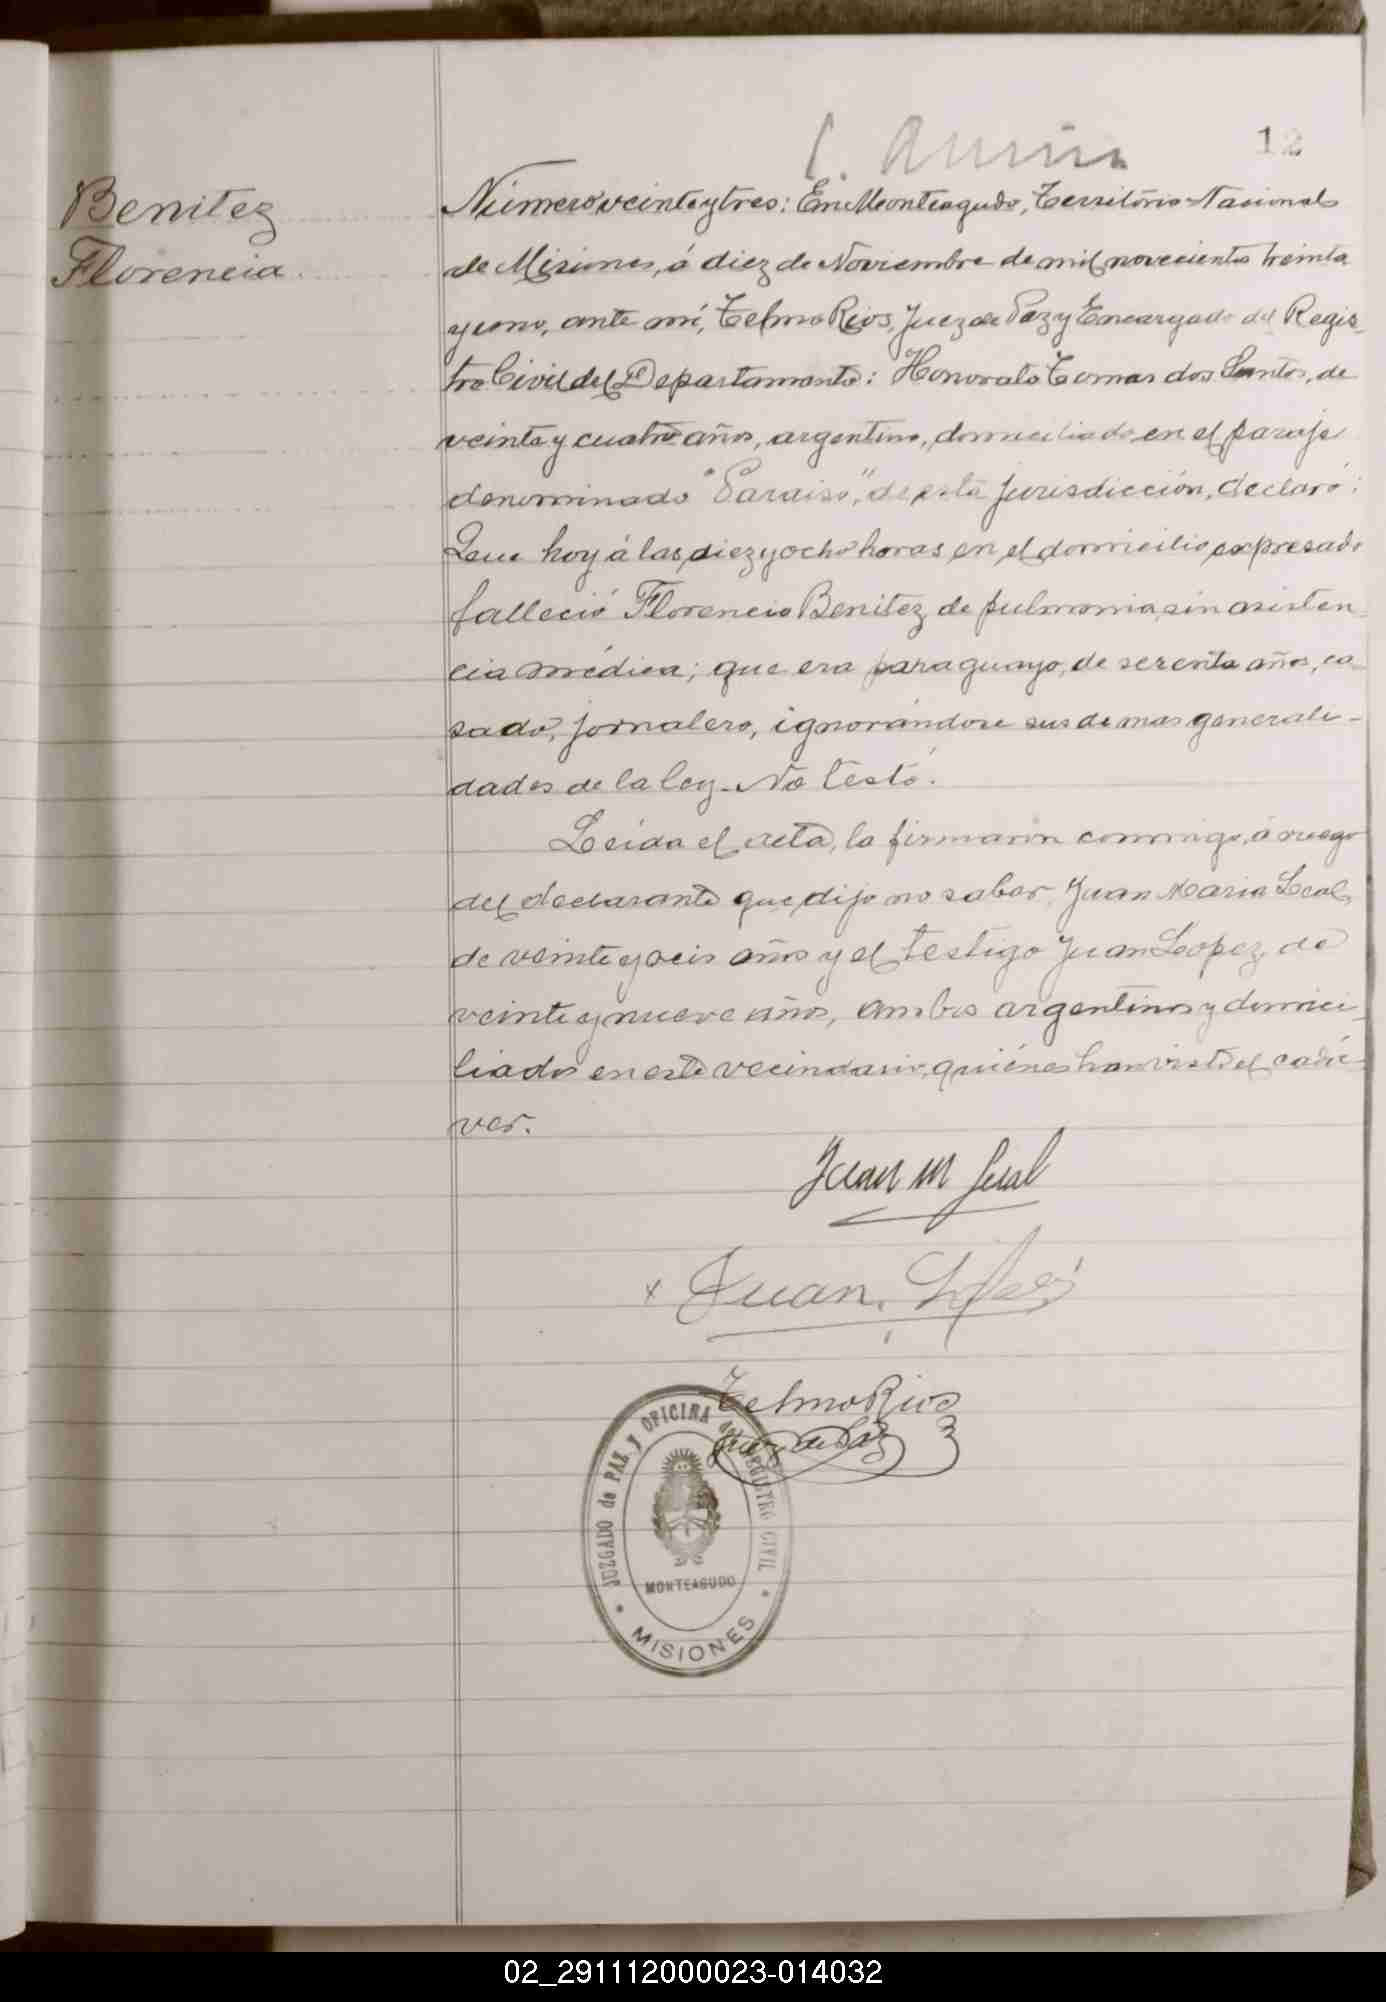 12
Benitez
Florencia
Número veinte y tres: En Monteagudo, Territorio Nacional
de Misiones, á diez de Noviembre de mil novecientos treinta
y uno, ante mí, Telmo Rios, Juez de Paz y Encargado del Regis-
tro Civil del Departamento: Honorato Tomas dos Santos, de
veinte y cuatro años, argentino, domiciliado en el paraje
denominado "Paraiso", de esta jurisdicción, declaró:
Que hoy á las diez y ocho horas, en el domicilio expresado
falleció Florencio Benitez de pulmonia, sin asisten-
cia médica; que era paraguayo, de años, ca-
sado, jornalero, ignorándose sus demas generali-
dades de la ley. No testó.
Leida el acta, la firmaron conmigo, á ruego
del declarante que dijo no saber, Juan Maria Leal,
de veinte y seis años y el testigo Juan Lopez, de
veinte y nueve años, ambos argentinos y domici-
liados en este vecindario, quiénes han visto el cadá-
ver.
Juan M Leal
x Juan Lopez
Telmo Rios
Juez de Paz
JUZGADO de PAZ y OFICINA del REGISTRO CIVIL
MONTEAGUDO
* MISIONES *
02_291112000023-014032